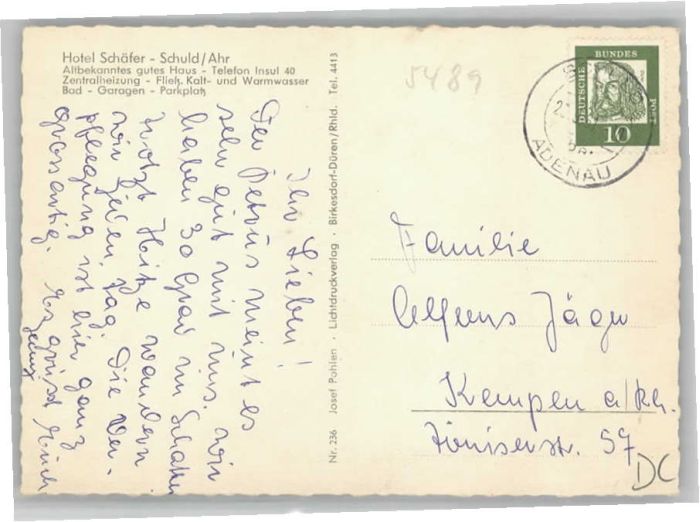 Hotel Schäfer - Schuld/Ahr
Altbekanntes gutes Haus - Telefon Insul 40
Zentralheizung - Fließ. Kalt- und Warmwasser
Bad - Garagen - Parkplatz
Ihr Lieben!
Der Petrus meint es
sehr gut mit uns. Wir
haben 30 Grad im Schatten
trotz Hitze wandern
wir jeden Tag. Die Ver-
pflegung ist hier ganz
grossartig. Es grüsst Euch
Nr. 236 Josef Pohlen · Lichtdruckverlag · Birkesdorf-Düren/Rhld. Tel. 4413
5489
DEUTSCHE BUNDES POST
10
ADENAU
Familie
Alfons Jäger
Kempen a/Rh.
57
DC